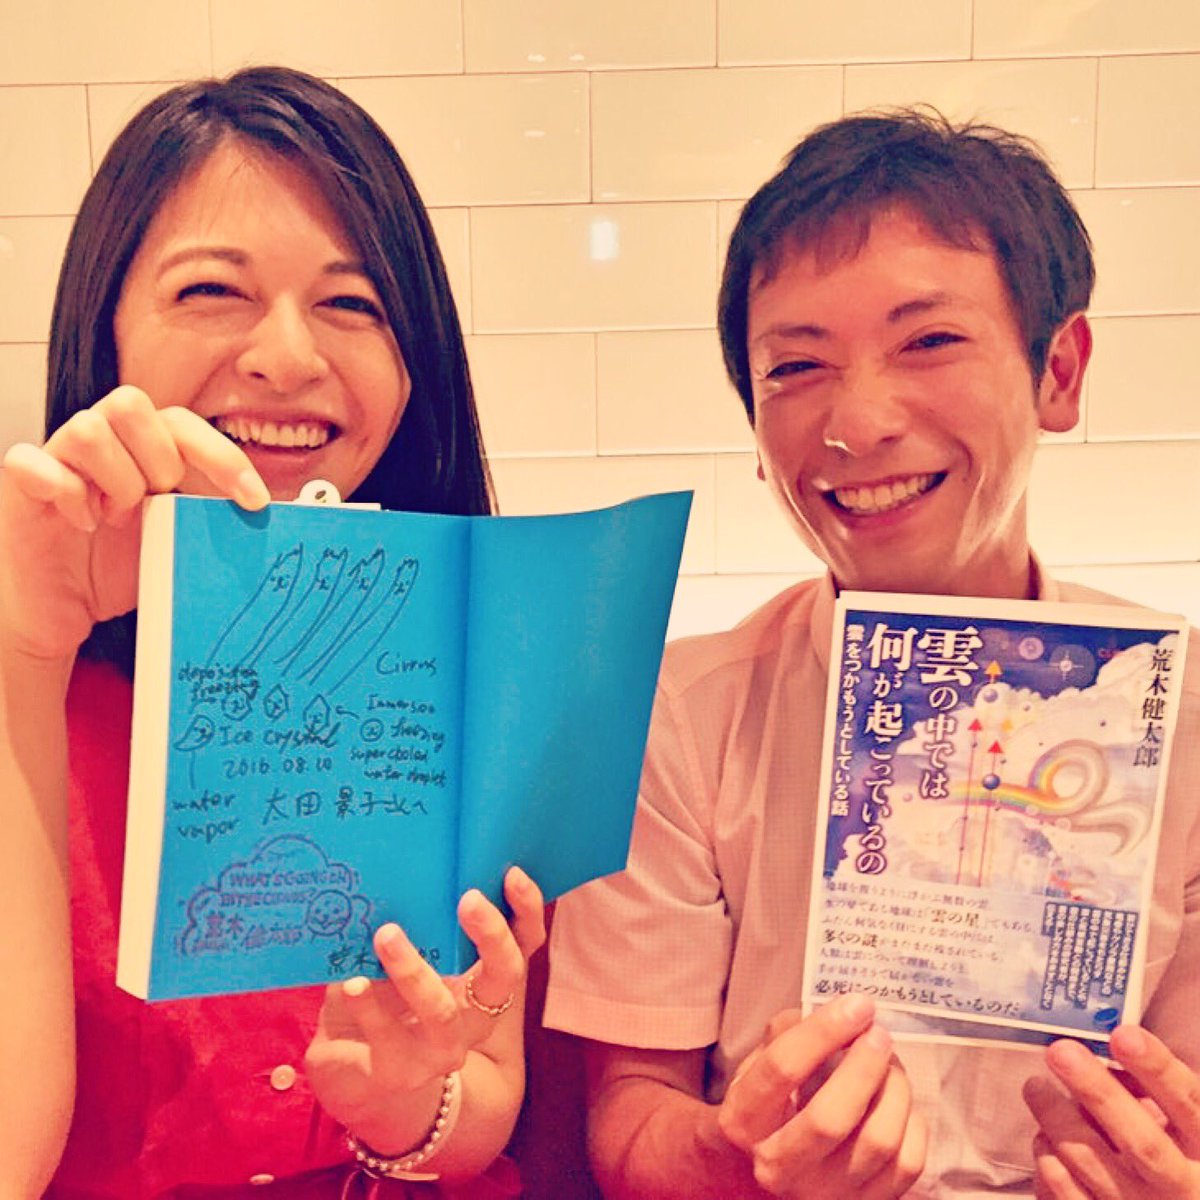 Cirrus
deposition
freezing
Immersion
freezing
Ice crystal
supercooled
water droplet
2016.08.10
water
vapor
太田 景子さんへ
WHAT'S GOING ON
IN THE CLOUDS
荒木健太郎
荒木
雲の中では
何が起こっているの
雲をつかもうとしている話
荒木健太郎
地球を覆うように浮かぶ無数の雲。
水の星である地球は「雲の星」でもある。
ふだん何気なく目にする雲の中には、
多くの謎がまだまだ残されている。
人類は雲について理解しようと、
手が届きそうで届かない雲を
必死につかもうとしているのだ